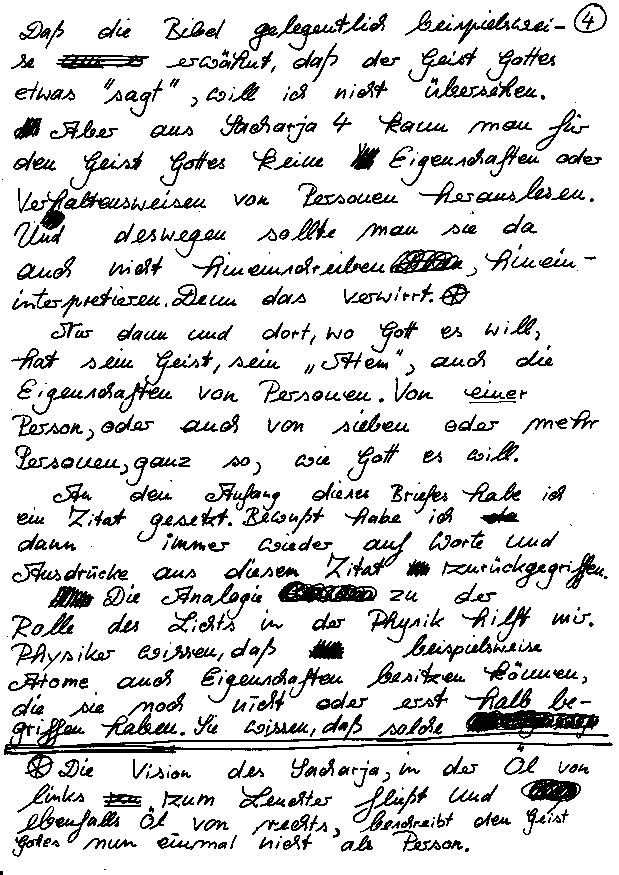 Daß die Bibel gelegentlich beispielswei- 4
se erwähnt, daß der Geist Gottes
etwas "sagt", will ich nicht übersehen.
Aber aus Sacharja 4 kann man für
den Geist Gottes keine Eigenschaften oder
Verhaltensweisen von Personen herauslesen.
Und deswegen sollte man sie da
auch nicht hineinschreiben, hinein-
interpretieren. Denn das verwirrt. ⊗
Nur dann und dort, wo Gott es will,
hat sein Geist, sein „Atem", auch die
Eigenschaften von Personen. Von einer
Person, oder auch von sieben oder mehr
Personen, ganz so, wie Gott es will.
An den Anfang dieses Briefes habe ich
ein Zitat gesetzt. Bewußt habe ich
dann immer wieder auf Worte und
Ausdrücke aus diesem Zitat zurückgegriffen.
Die Analogie zu der
Rolle des Lichts in der Physik hilft mir.
Physiker wissen, daß beispielsweise
Atome auch Eigenschaften besitzen können,
die sie noch nicht oder erst halb be-
griffen haben. Sie wissen, daß solche
⊗ Die Vision des Sacharja, in der Öl von
links zum Leuchter fließt und
ebenfalls Öl von rechts, beschreibt den Geist
Gottes nun einmal nicht als Person.